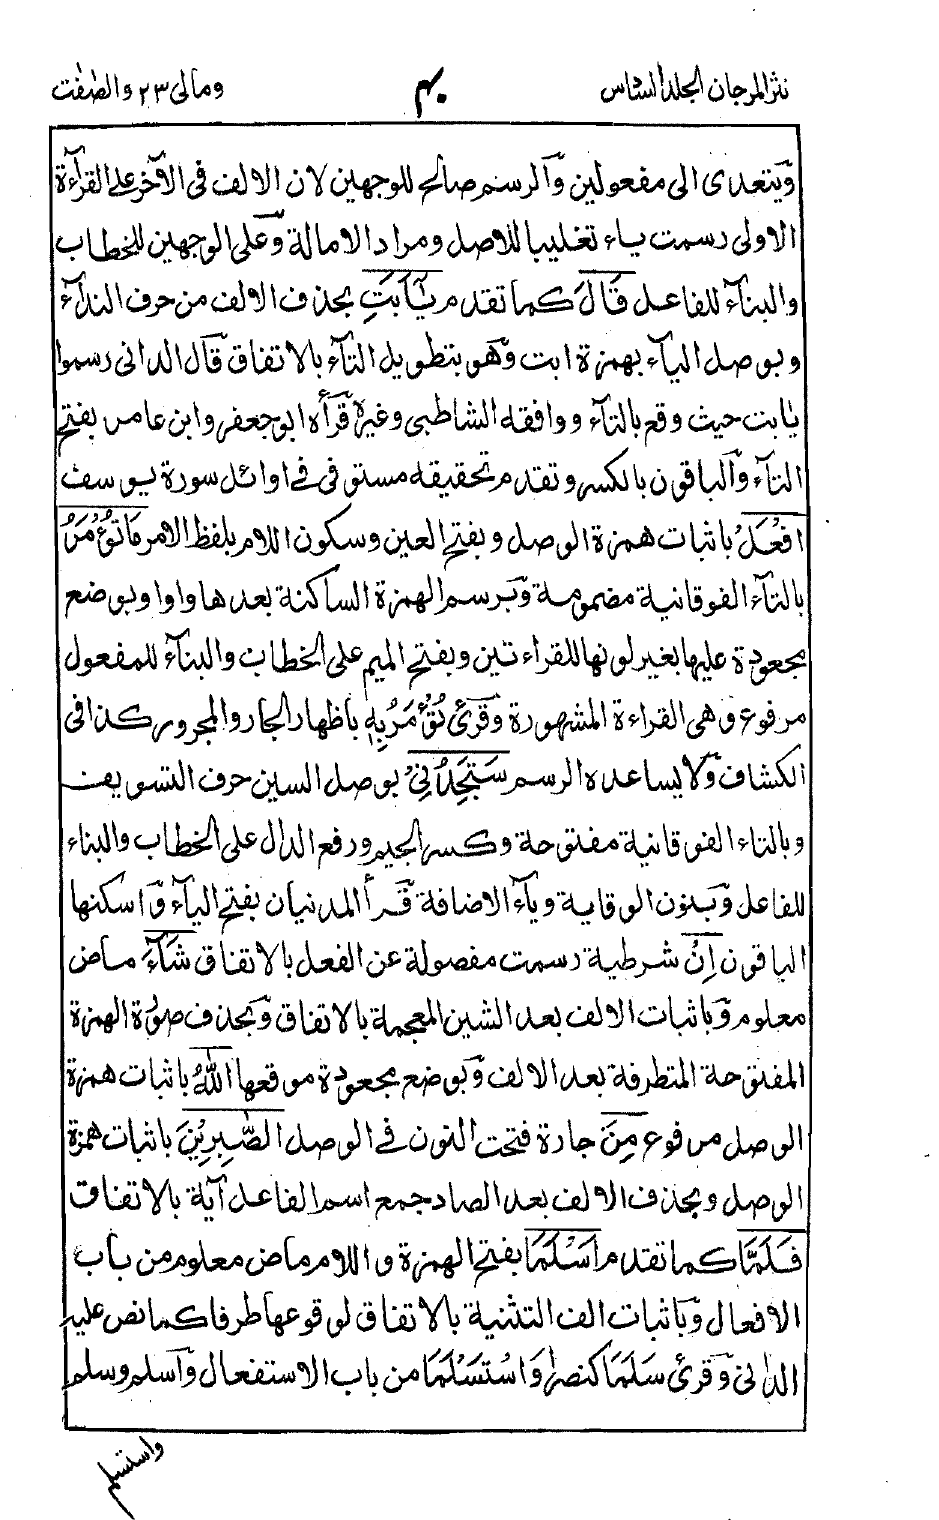 نثر المرجان الجلد السادس ٤٠ ومالی ٢٣ والصّٰفّٰت
ويتعدى الى مفعولين والرسم صالح للوجهين لان الالف فى الآخر على القرآءة
الاولى رسمت ياء تغليبا للاصل ومراد الامالة وعلى الوجهين للخطاب
والبنآء للفاعل قَالَ كما تقدم يٰٓاَبَتِ بحذف الالف من حرف الندآء
وبوصل اليآء بهمزة ابت وهو بتطويل التآء بالاتفاق قال الدانى رسموا
يٰابت حيث وقع بالتآء ووافقه الشاطبى وغيره قرأه ابو جعفر وابن عامر بفتح
التآء والباقون بالكسر وتقدم تحقيقه مستوفى فى اوائل سورة يوسف
افْعَلْ باثبات همزة الوصل وبفتح العين وسكون اللام بلفظ الامر مَا تُؤْمَرُ
بالتآء الفوقانية مضمومة وبرسم الهمزة الساكنة بعدها واوا وبوضع
مجعودة عليها بغير لونها للقراءتين وبفتح الميم على الخطاب والبنآء للمفعول
مرفوع وهى القراءة المشهورة وقرئ تُؤْمَرُ بِهٖ باظهار الجار والمجرور كذا فى
الكشاف ولا يساعده الرسم سَتَجِدُنِيْ بوصل السين حرف التسويف
وبالتاء الفوقانية مفتوحة وكسر الجيم ورفع الدال على الخطاب والبناء
للفاعل وبنون الوقاية ويآء الاضافة قرأ المدنيان بفتح اليآء واسكنها
الباقون اِنْ شرطية رسمت مفصولة عن الفعل بالاتفاق شَآءَ ماض
معلوم وباثبات الالف بعد الشين المعجمة بالاتفاق وبحذف صورة الهمزة
المفتوحة المتطرفة بعد الالف وبوضع مجعودة موقعها اللّٰهُ باثبات همزة
الوصل مرفوع مِنَ جارة فتحت النون فى الوصل الصّٰبِرِيْنَ باثبات همزة
الوصل وبحذف الالف بعد الصاد جمع اسم الفاعل آية بالاتفاق
فَلَمَّا كما تقدم اَسْلَمَا بفتح الهمزة واللام ماض معلوم من باب
الافعال وباثبات الف التثنية بالاتفاق لوقوعها طرفا كما نص عليه
الدانى وقرئ سَلَمَا كنصرا وَاسْتَسْلَمَا من باب الاستفعال واسلم وسلم
واستسلم